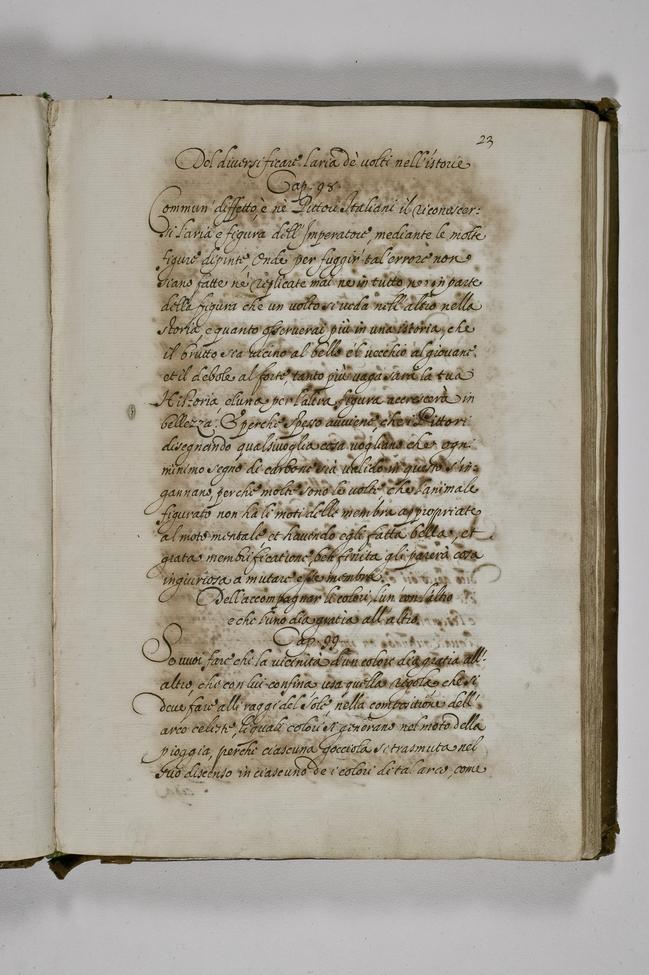 23
Del diversificare l'aria de volti nell'istorie
Cap. 98.
Commun diffetto è ne Pittori Italiani il riconoscer:
si l'aria e figura dell'Imperatore, mediante le molte
figure dipinte, Onde per fuggir' tal'errore non
siano fatte né replicate mai ne in tutto ne in parte
della figura che un volto si veda nell'altro nella
storia, e quanto osserverai più in una istoria, che
il brutto sia vicino al bello e'l vecchio al giovane,
et il debole al forte, tanto più vaga sarà la tua
Historia, e l'una per l'altra figura accrescerà in
bellezza; E perche spesso avviene, che i Pittori
disegnando qualsivoglia cosa vogliano che ogni
minimo segno di carbone sia valido in questo s'in-
gannano, perche molte sono le volte che l'animale
figurato non ha li moti delle membra appropriate
al moto mentale et havendo egli fatta bella, et
grata membrificatione, ben finita gli parerà cosa
ingiuriosa a mutare esse membra.
Dell'accompagnar li colori, l'un con l'altro
e che l'uno dia gratia all'altro.
Cap. 99.
Se vuoi fare che la vicinità d'un colore dia gratia all'
altro, che con lui confina usa quella regola che si
deve fare alli raggi del Sole nella compositione dell'
arco celeste, li quali colori si generano nel moto della
pioggia, perche ciascuna gocciola si trasmuta nel
suo discenso in ciascuno de i colori di tal arco, come